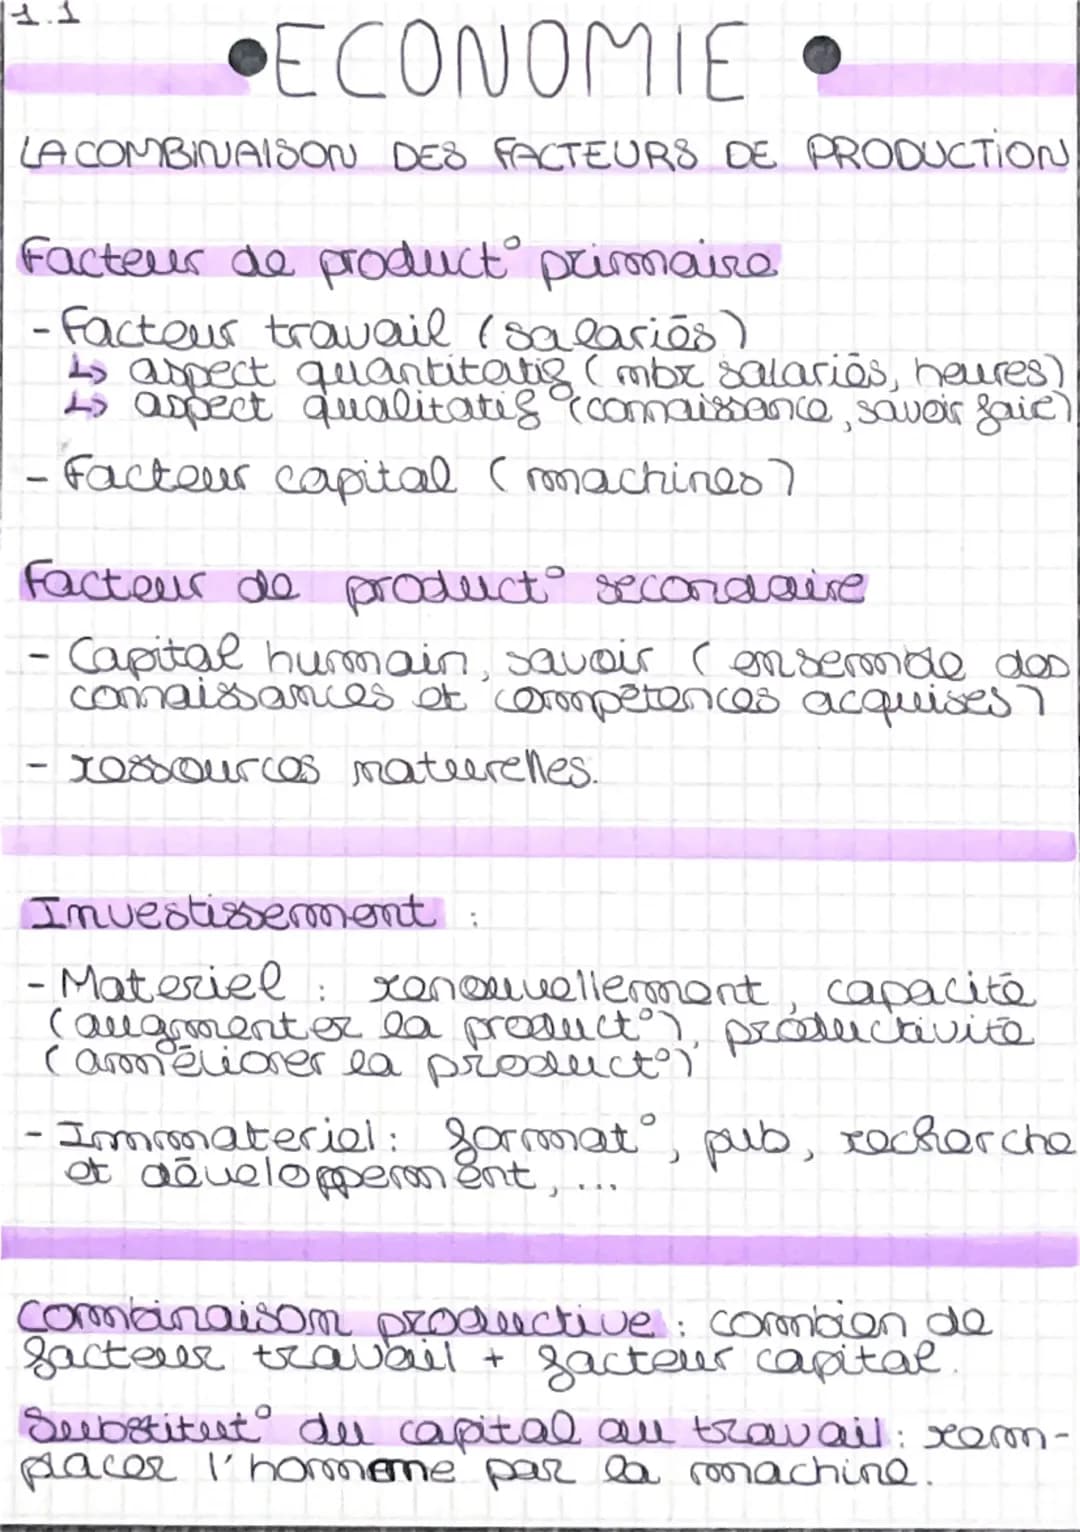 1.1
•ECONOMIE •
LA COMBINAISON DES FACTEURS DE PRODUCTION
Facteur de product° primaire
- Facteur travail (salariés)
↳ aspect quantitatif (nbr salariés, heures)
↳ aspect qualitatif (connaissance, savoir faire)
- Facteur capital (machines)
Facteur de product° secondaire
- Capital humain, savoir (ensemble des
connaissances et compétences acquises)
- ressources naturelles.
Investissement :
- Materiel : renouvellement, capacité
(augmenter la product°), productivité
(améliorer la product°)
- Immateriel : format°, pub, recherche
et développement, ...
Combinaison productive : combien de
facteur travail + facteur capital.
Substitut° du capital au travail : rem-
placer l'homme par la machine.